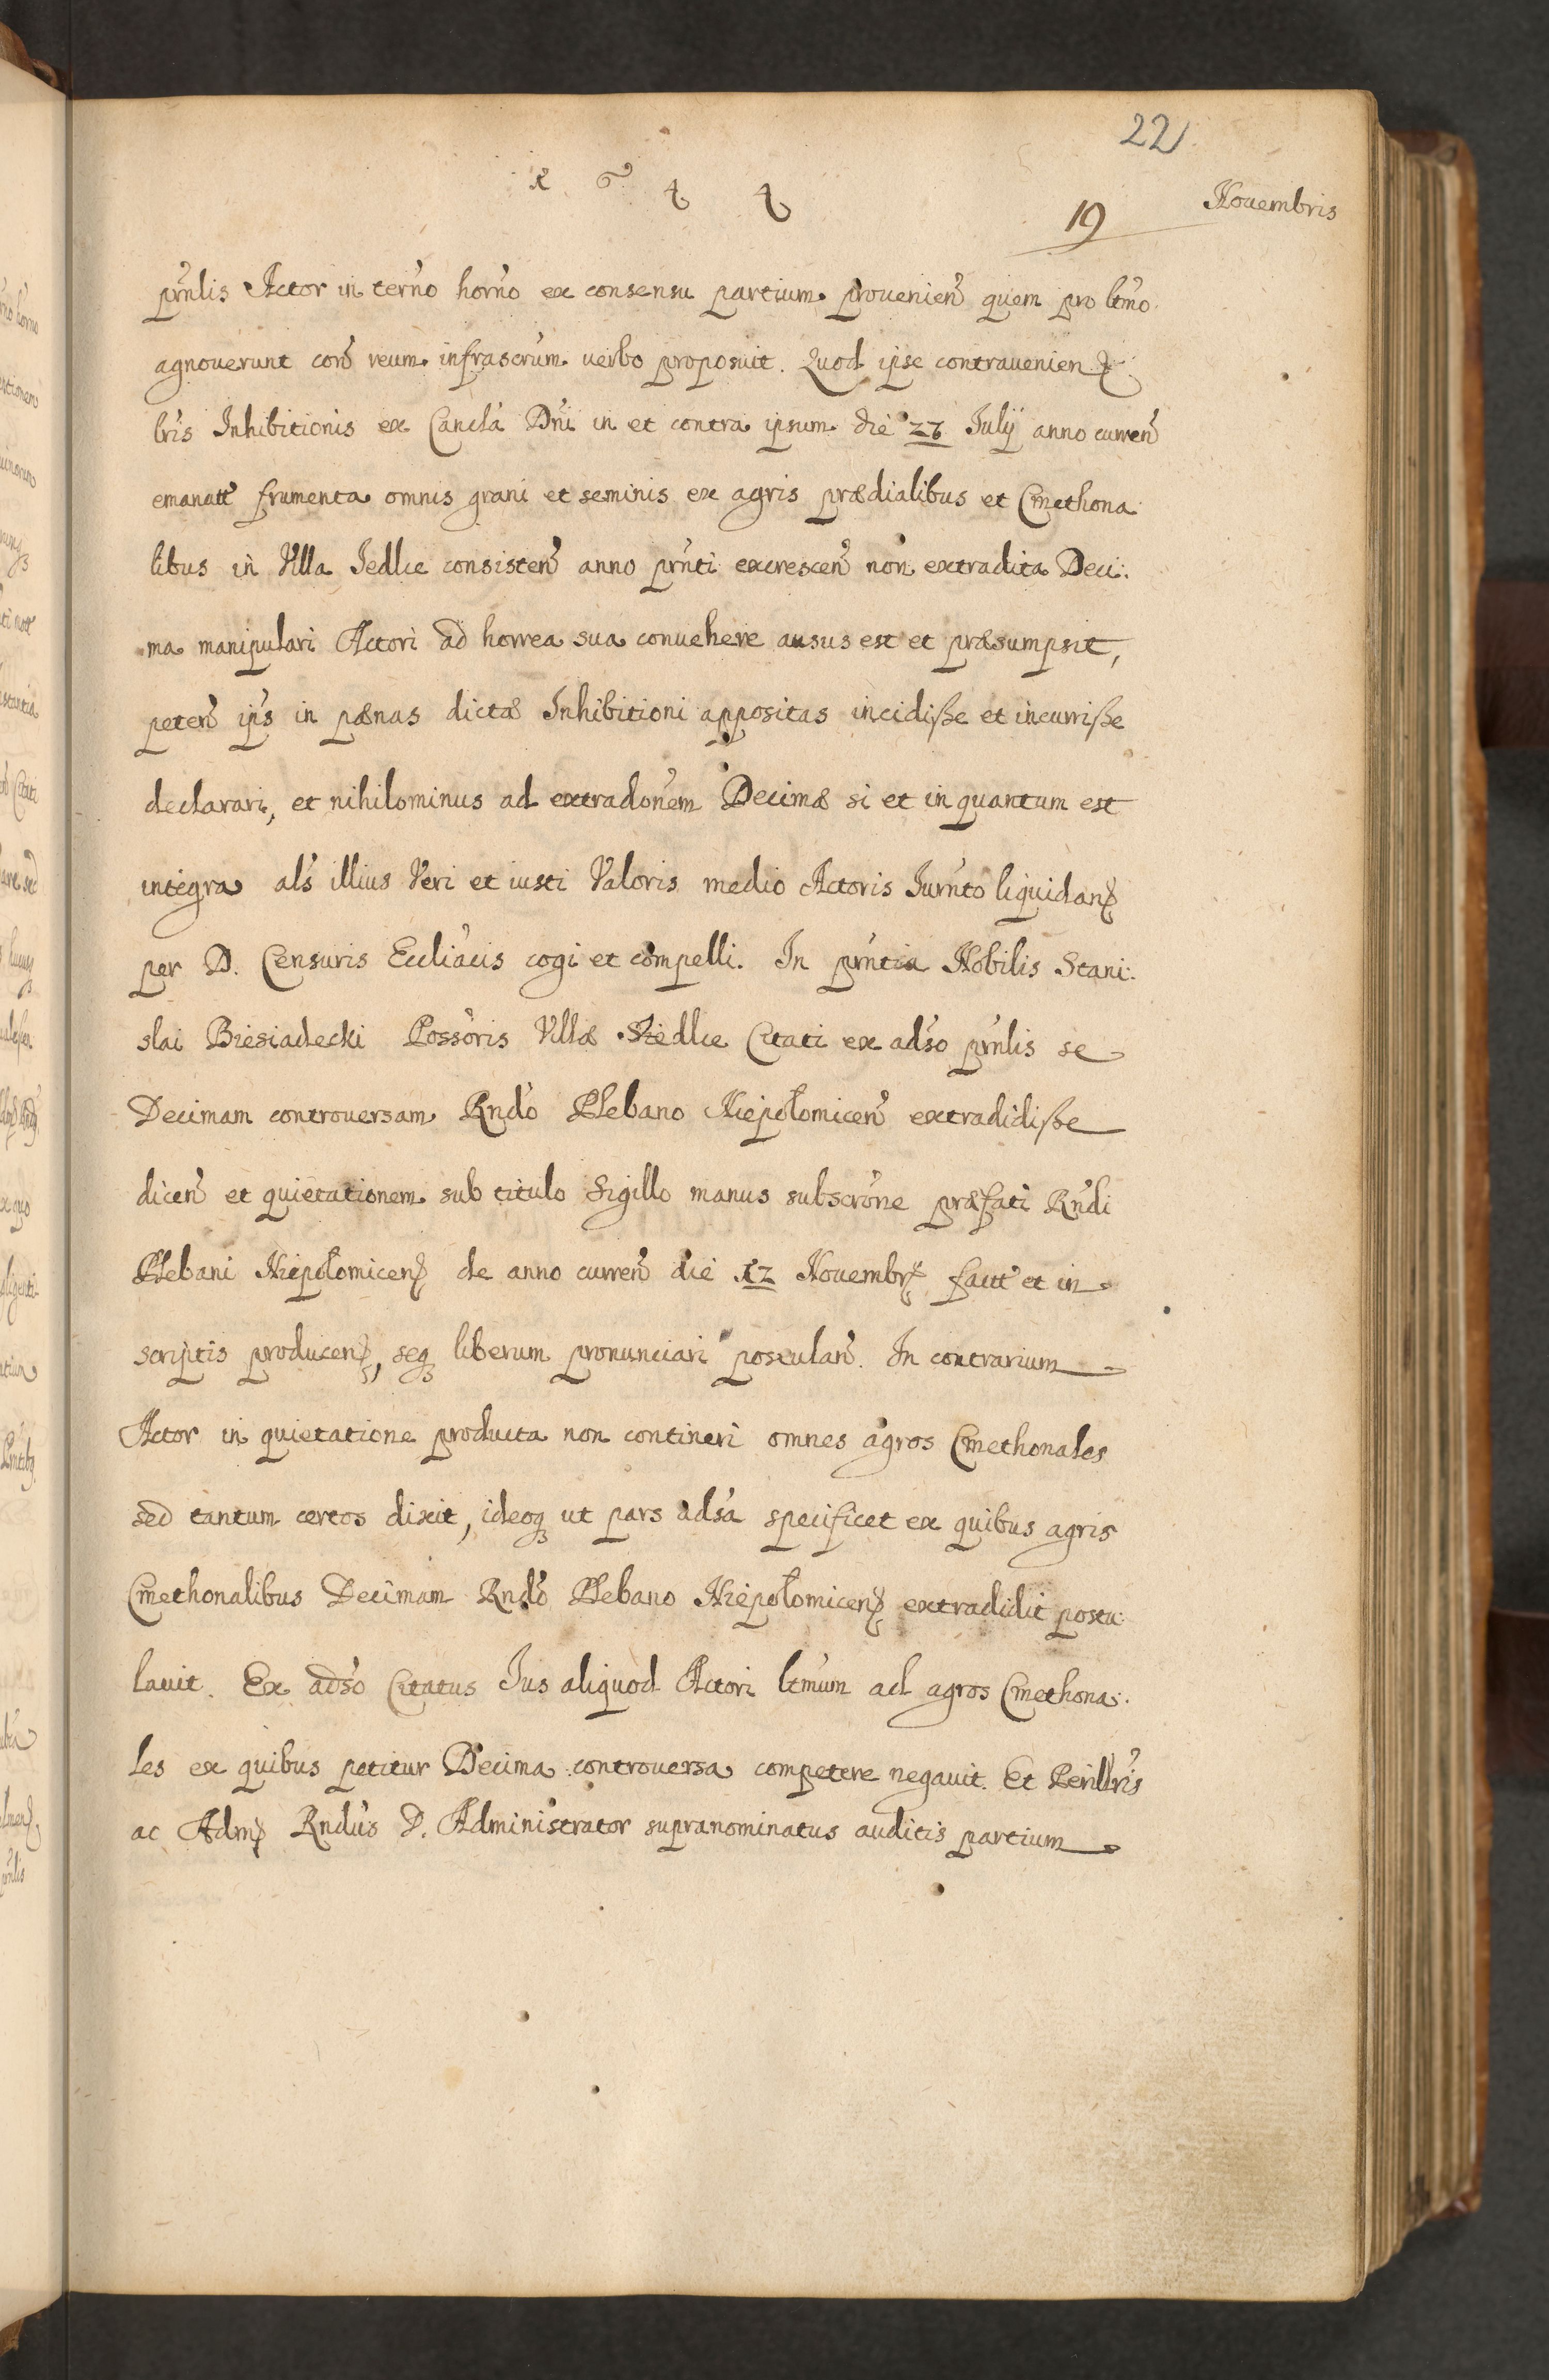 22
1 6 4 4
19 Nouembris
prńlis Actor in terńo horńo ex consensu partium prouenień quem pro ltmó
agnoverunt corń reum infrascrúm verbo proposuit. Quod ipse contravenień
lrís Inhibitionis ex Canclá Dńi in et contra ipsum die Julij anno curreń
emanatt frumenta omnis grani et seminis ex agris prædialibus et Cmethona
libus in Villa Jedlie consisteń anno prńti excresceń non extradita Deci:
ma manipulari Actori ad horrea sua convehere ausus est et præsumpsit,
peteń ips in pænas dictæ Inhibitioni appositas incidisse et incurrisse
declarari, et nihilominus ad extradońem Decimæ si et in quantum est
integra als illius Veri et iusti Valoris medio Actoris Jurńto liquidan
per D. Censuris Eccliácis cogi et compelli. In prńtia Nobilis Stani:
slai Biesiadecki Possoris Villæ Siedlie Citati ex adso prńlis se
Decimam controuersam Rndo Plebano Niepołomiceń extradidisse
diceń et quietationem sub titulo Sigillo manus subscrońe præfati Rńdi
Plebani Niepołomicen de anno curreń die 12 Nouembr fatt et in
scriptis producen, seq liberum pronunciari postulań. In contrarium
Actor in quietatione producta non contineri omnes agros Cmethonales
sed tantum certos dixit, ideoq ut pars adsa specificet ex quibus agris
Cmethonalibus Decimam Rndo Plebano Niepołomicen extradidit postu:
lauit. Ex adso Citatus Jus aliquod Actori ltmum ad agros Cmethona:
les ex quibus petitur Decima controuersa competere negauit. Et Perillris
ac Adm Rndus D. Administrator supranominatus auditis partium